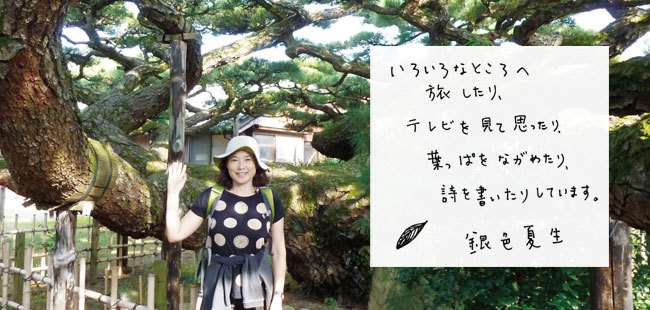 いろいろなところへ
旅したり、
テレビを見て思ったり、
葉っぱをながめたり、
詩を書いたりしています。
銀色夏生